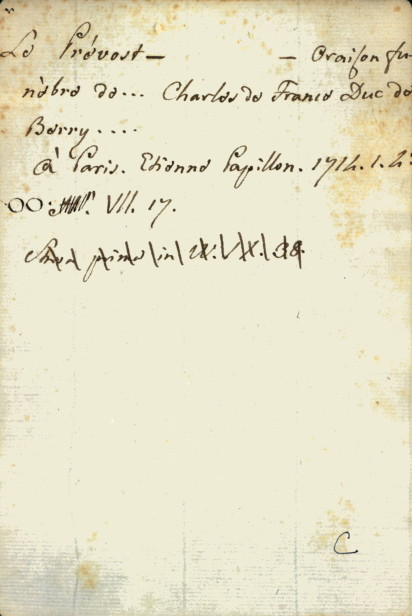 Le Prévost — — Oraison fu-
nèbre de... Charles de France Duc de
Berry....
à Paris. Etienne Papillon. 1714. 1. 4:
OO: VII. 17.
prima in
C